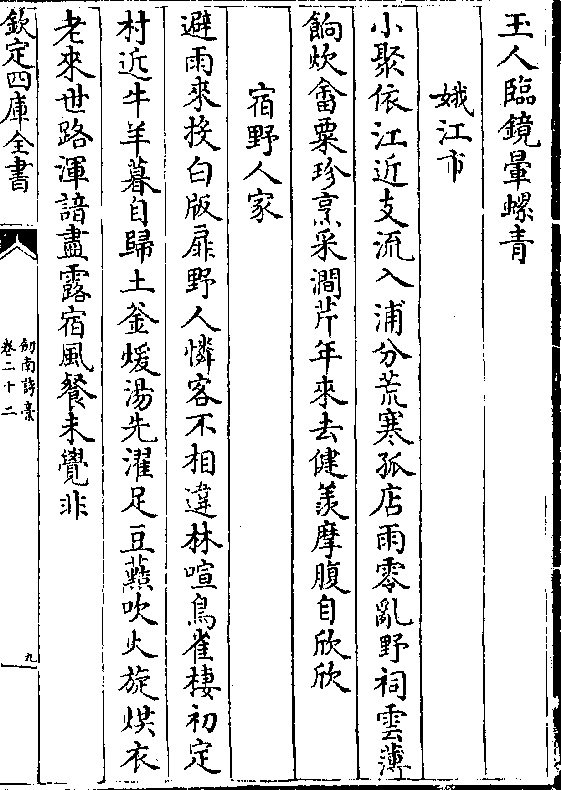 玉人臨鏡暈螺青
娥江市
小聚依江近支流入浦分荒寒孤店雨零亂野祠雲薄
餉炊畬粟珍烹采澗芹年來去健羨摩腹自欣欣
宿野人家
避雨來投白版扉野人憐客不相違林喧鳥雀棲初定
村近牛羊暮自歸土釜煖湯先濯足豆䕸吹火旋烘衣
老來世路渾諳盡露宿風餐未覺非
欽定四庫全書
劒南詩稾
卷二十二
九